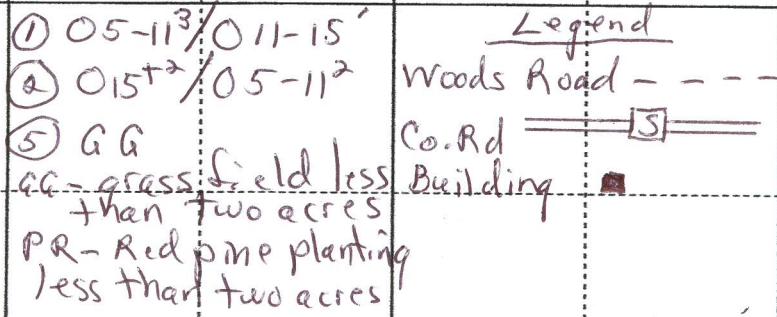 ① O5-11³/O11-15'
② O15⁺²/O5-11²
⑤ GG
GG - grass field less
than two acres
PR - Red pine planting
less than two acres
Legend
Woods Road
Co. Rd S
Building